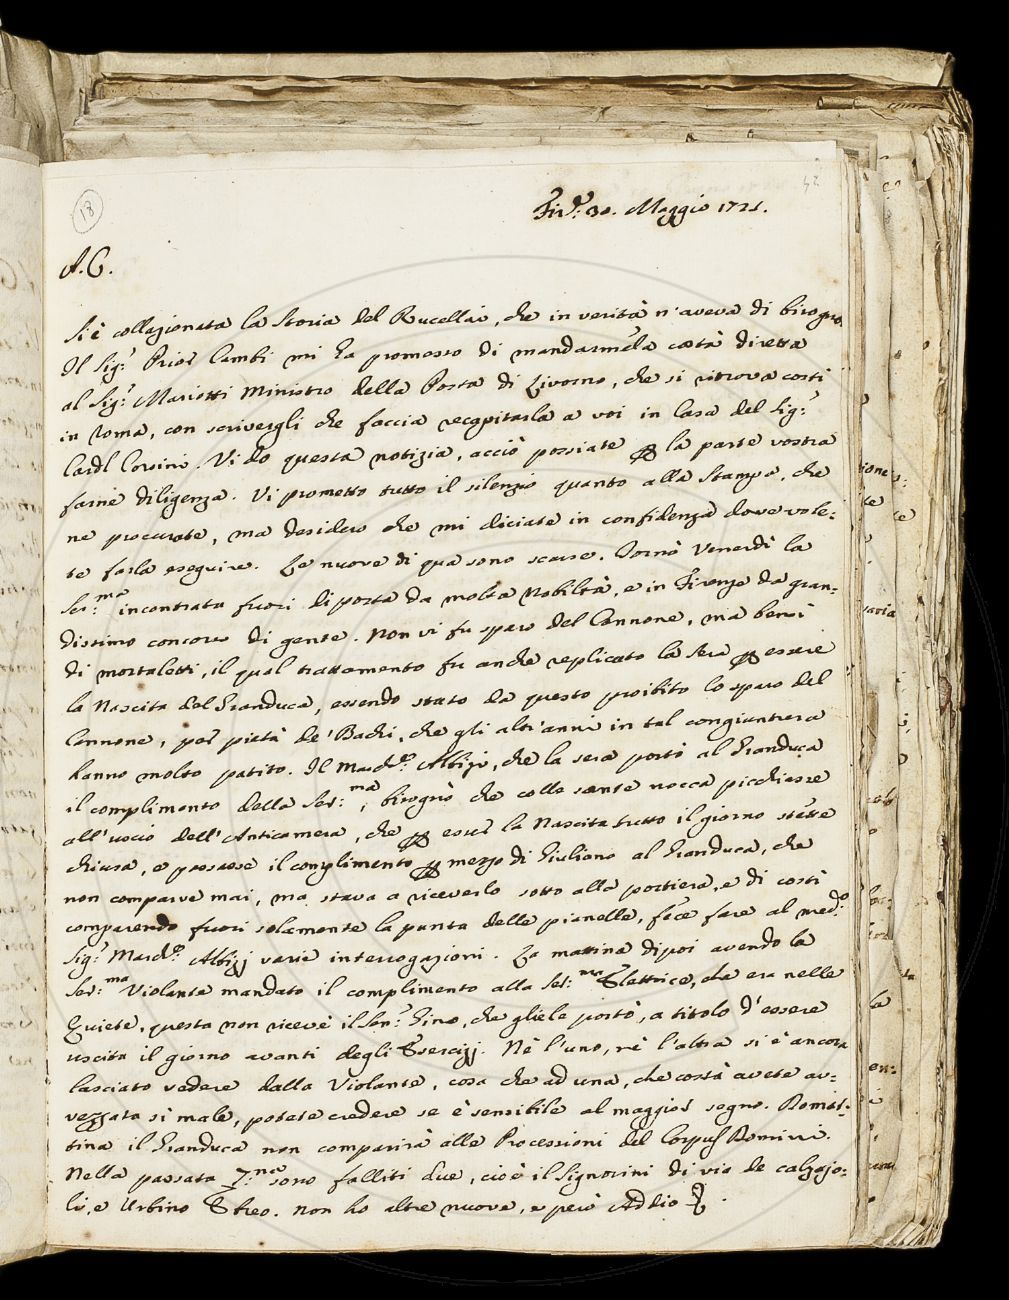 18
42
Fir.e 30. Maggio 1721.
A. C.
Si è collazionata la Storia del Rucellai, che in verità n'aveva di bisogno.
Il Sig.r Prior Cambi mi ha promesso di mandarmela costà diretta
al Sig.r Mariotti Ministro della Posta di Livorno, che si ritrova costì
in Roma, con scrivergli che faccia recapitarla a voi in Casa del Sig.r
Cardl Corsini. Vi do questa notizia, acciò possiate p la parte vostra
farne diligenza. Vi prometto tutto il silenzio quanto alla Stampa, che
ne procurate, ma desidero che mi diciate in confidenza dove vole:
te farla eseguire. Le nuove di qua sono scarse. Tornò Venerdì la
Ser:ma incontrata fuori di porta da molta Nobiltà, e in Firenze da gran:
dissimo concorso di gente. Non vi fu sparo del Cannone, ma bensì
di mortaletti, il qual trattamento fu anche replicato la sera p essere
la Nascita del Granduca, essendo stato da questo proibito lo sparo del
Cannone, per pietà de' Bachi, che gli altr'anni in tal congiuntura
hanno molto patito. Il March.e Albizi, che la sera portò al Granduca
il complimento della Ser:ma, bisognò che colle sante nocca picchiasse
all'uscio dell'Anticamera, che p esser la Nascita tutto il giorno stette
chiusa, e processe il complimento p mezzo di Giuliano al Granduca, che
non comparve mai, ma stava a riceverlo sotto alla portiera, e di costì
comparendo fuori solamente la punta delle pianelle, fece fare al med.o
Sig.r March.e Albizj varie interrogazioni. La mattina dipoi avendo la
Ser:ma Violante mandato il complimento alla Ser:ma Elettrice, che era nelle
Quiete, questa non ricevè il Sen.r Gino, che gliele portò, a titolo d'essere
uscita il giorno avanti degli Esercizj. Nè l'uno, nè l'altra si è ancora
lasciato vedere dalla Violante, cosa che ad una, che costà avete av=
vezzata sì male, potete credere se è sensibile al maggior segno. Domat:
tina il Granduca non comparirà alle Processioni del Corpus Domini.
Nella passata 7.na sono falliti due, cioè il Signorini di via de calzajo:
li, e Urbino Ebreo. Non ho altre nuove, e però Addio